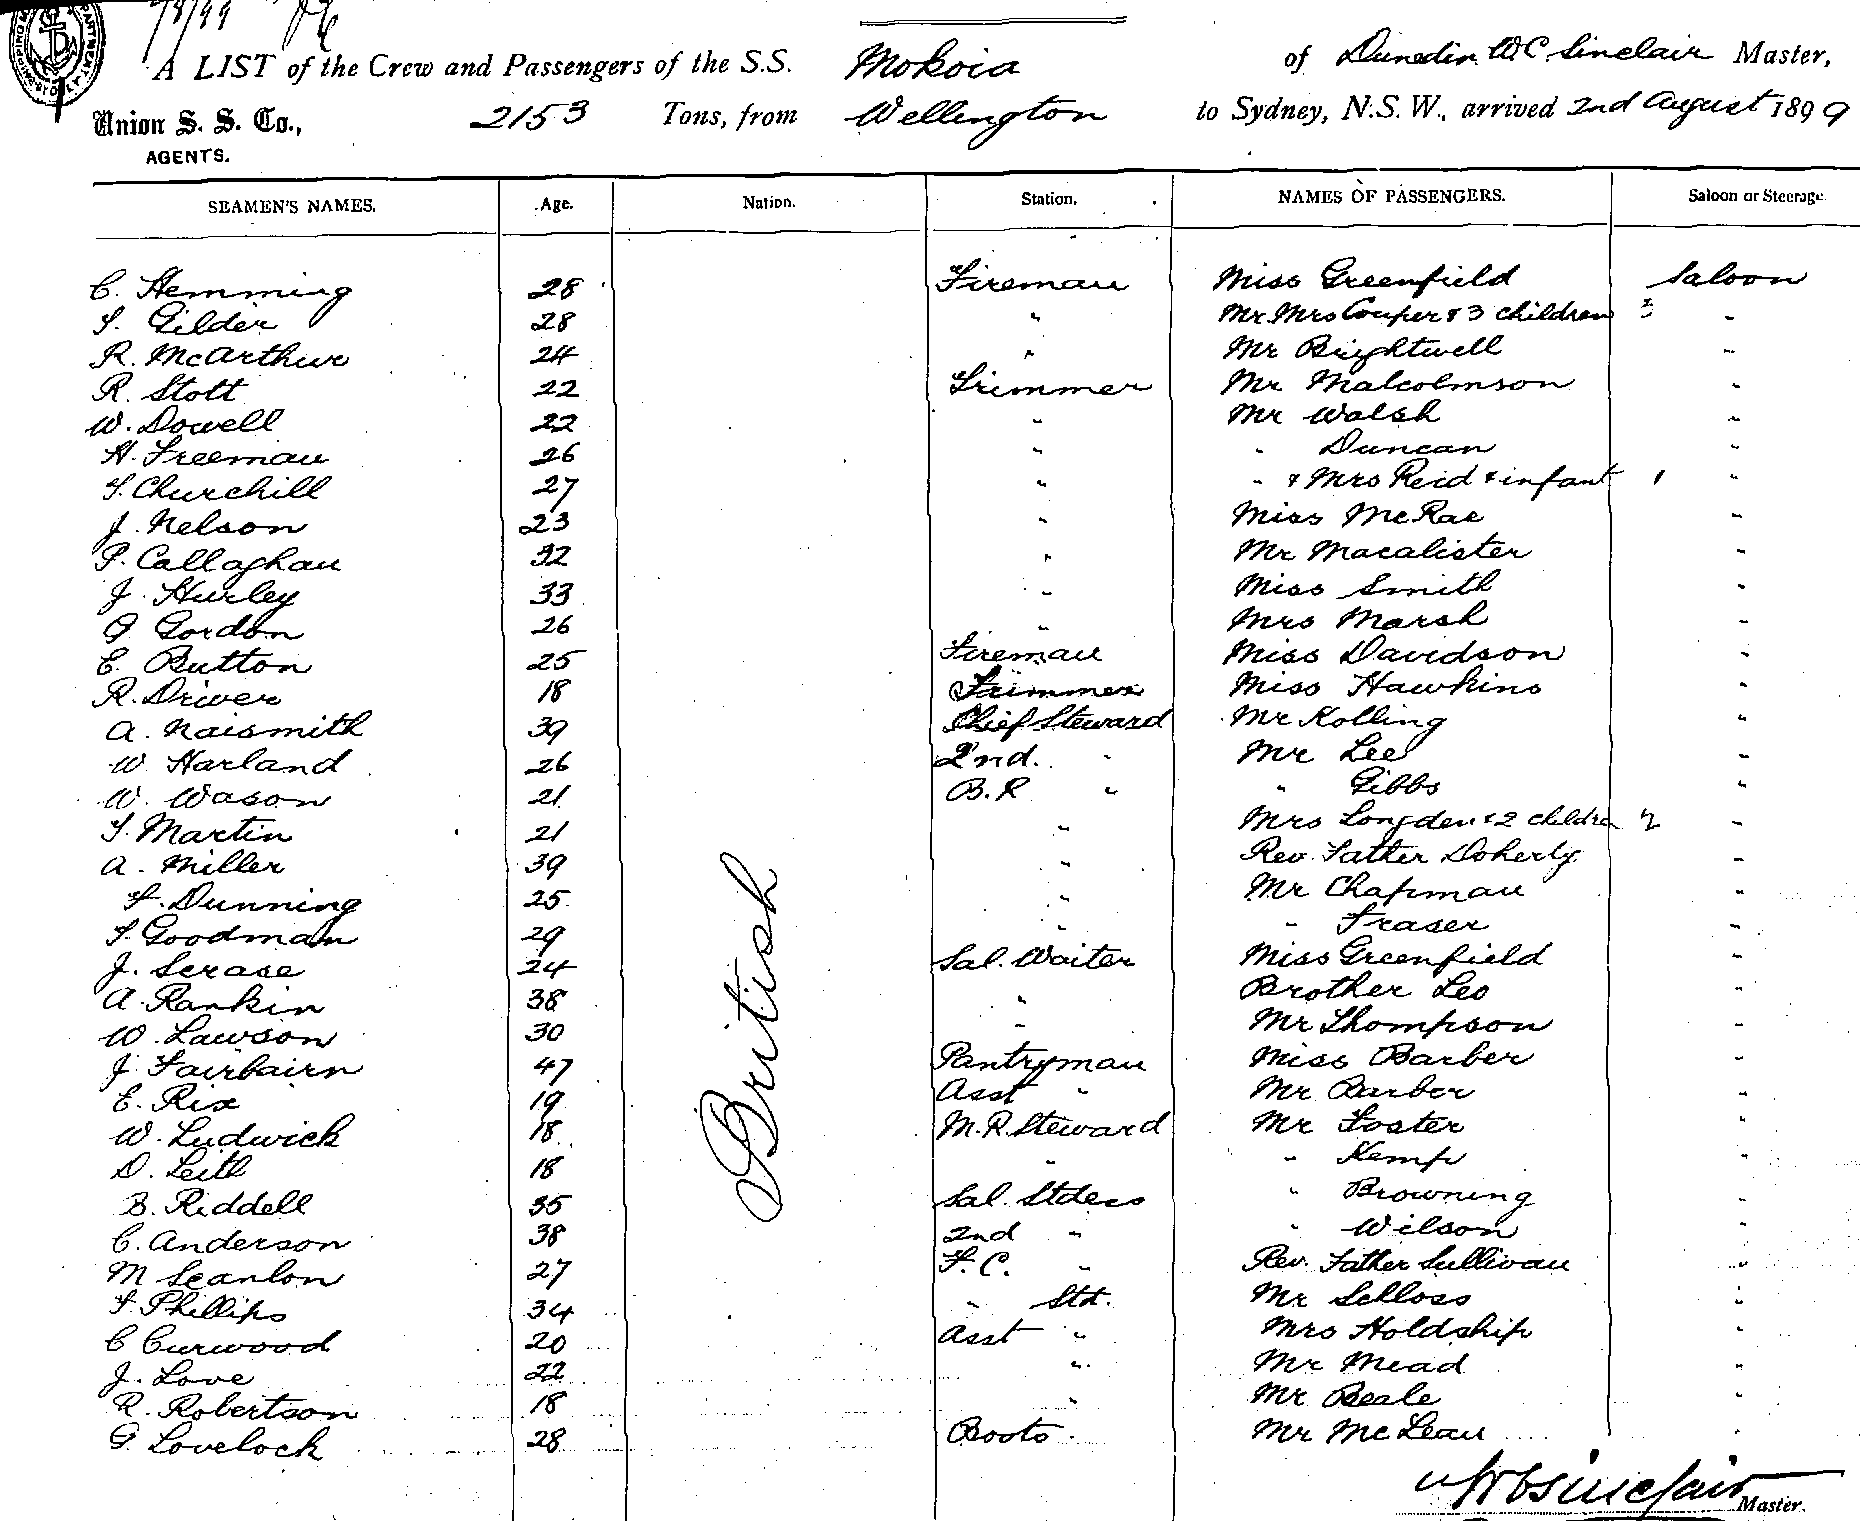 7/8/99
A LIST of the Crew and Passengers of the S.S. Mokoia of Dunedin WC Sinclair Master,
Union S. S. Co., 2153 Tons, from Wellington to Sydney, N.S.W., arrived 2nd August 1899
AGENTS.
SEAMEN'S NAMES. Age. Nation. Station. NAMES OF PASSENGERS. Saloon or Steerage
C. Hemming 28 Fireman Miss Greenfield Saloon
T. Gilder 28 " Mr Mrs Couper & 3 children 3 "
R. McArthur 24 " Mr Brightwell "
R. Stott 22 Trimmer Mr Malcolmson "
W. Dowell 22 " Mr Walsh "
H. Freeman 26 " " Duncan "
T. Churchill 27 " " & Mrs Reid & infant 1 "
J. Nelson 23 " Miss McRae "
P. Callaghan 32 " Mr Macalister "
J. Hurley 33 " Miss Smith "
G Gordon 26 " Mrs Marsh "
E. Button 25 Fireman Miss Davidson "
R. Driver 18 Trimmer Miss Hawkins "
A. Naismith 39 Chief Steward Mr Kolling "
W Harland 26 2nd. " Mr Lee "
W. Wason 21 B.R " " Gibbs "
T. Martin 21 " Mrs Longden & 2 childre 2 "
A. Miller 39 " Rev. Father Doherty "
F. Dunning 25 " Mr Chapman "
T. Goodman 29 " " Fraser "
J. Scrase 24 Sal. Waiter Miss Greenfield "
A. Rankin 38 " Brother Leo "
W. Lawson 30 " Mr Thompson "
J. Fairbairn 47 Pantryman Miss Barber "
E. Rix 19 Asst " Mr Barber "
W. Ludwick 18 M.R. Steward Mr Foster "
D. Leitl 18 " " Kemp "
B. Riddell 35 Sal. Stdess " Browning "
C. Anderson 38 2nd " " Wilson "
M Scanlon 27 F. C. " Rev. Father Sullivan "
F Phillips 34 " Std. Mr Schloss "
C Curwood 20 Asst " Mrs Holdship "
J. Love 22 " Mr Mead "
R. Robertson 18 " Mr Beale "
G. Lovelock 28 Boots. Mr McLean "
British
WC Sinclair
Master.